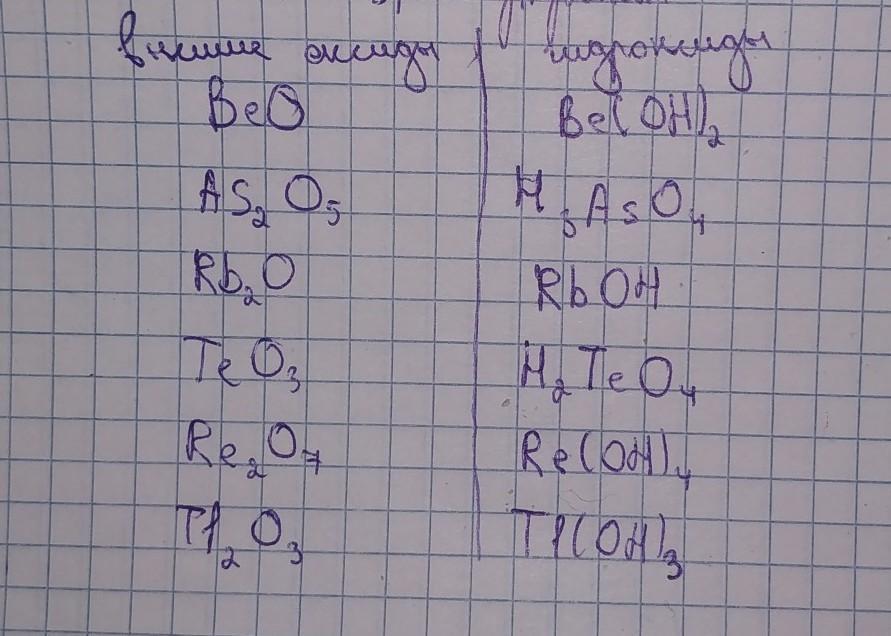 высшие оксиды гидроксиды
BeO Be(OH)₂
As₂O₅ H₃AsO₄
Rb₂O RbOH
TeO₃ H₂TeO₄
Re₂O₇ Re(OH)₄
Tl₂O₃ Tl(OH)₃